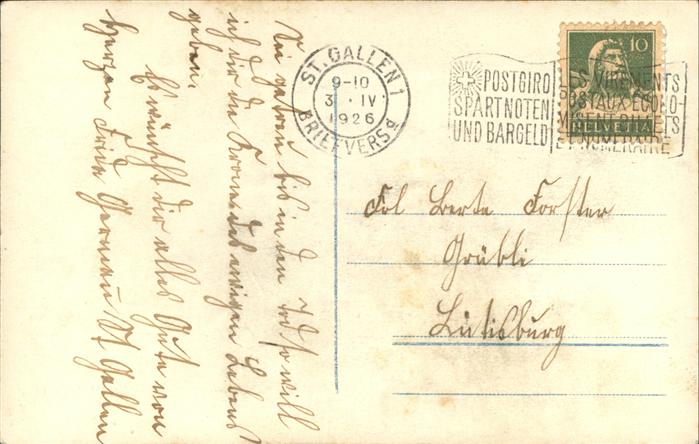 Sei getreu bis in den Tod so will
ich dir die Krone des ewigen Lebens
geben.
Es wünscht dir alles Gute von
Herzen Frida Germann St Gallen
ST. GALLEN 1
9-10
3. IV
1926
BRIEFVERSd
POSTGIRO
SPART NOTEN
UND BARGELD
LES VIREMENTS
POSTAUX ECONO-
MISENT BILLETS
ET NUMERAIRE
10
HELVETIA
Frl Berta Forster
Grübli
Lütisburg